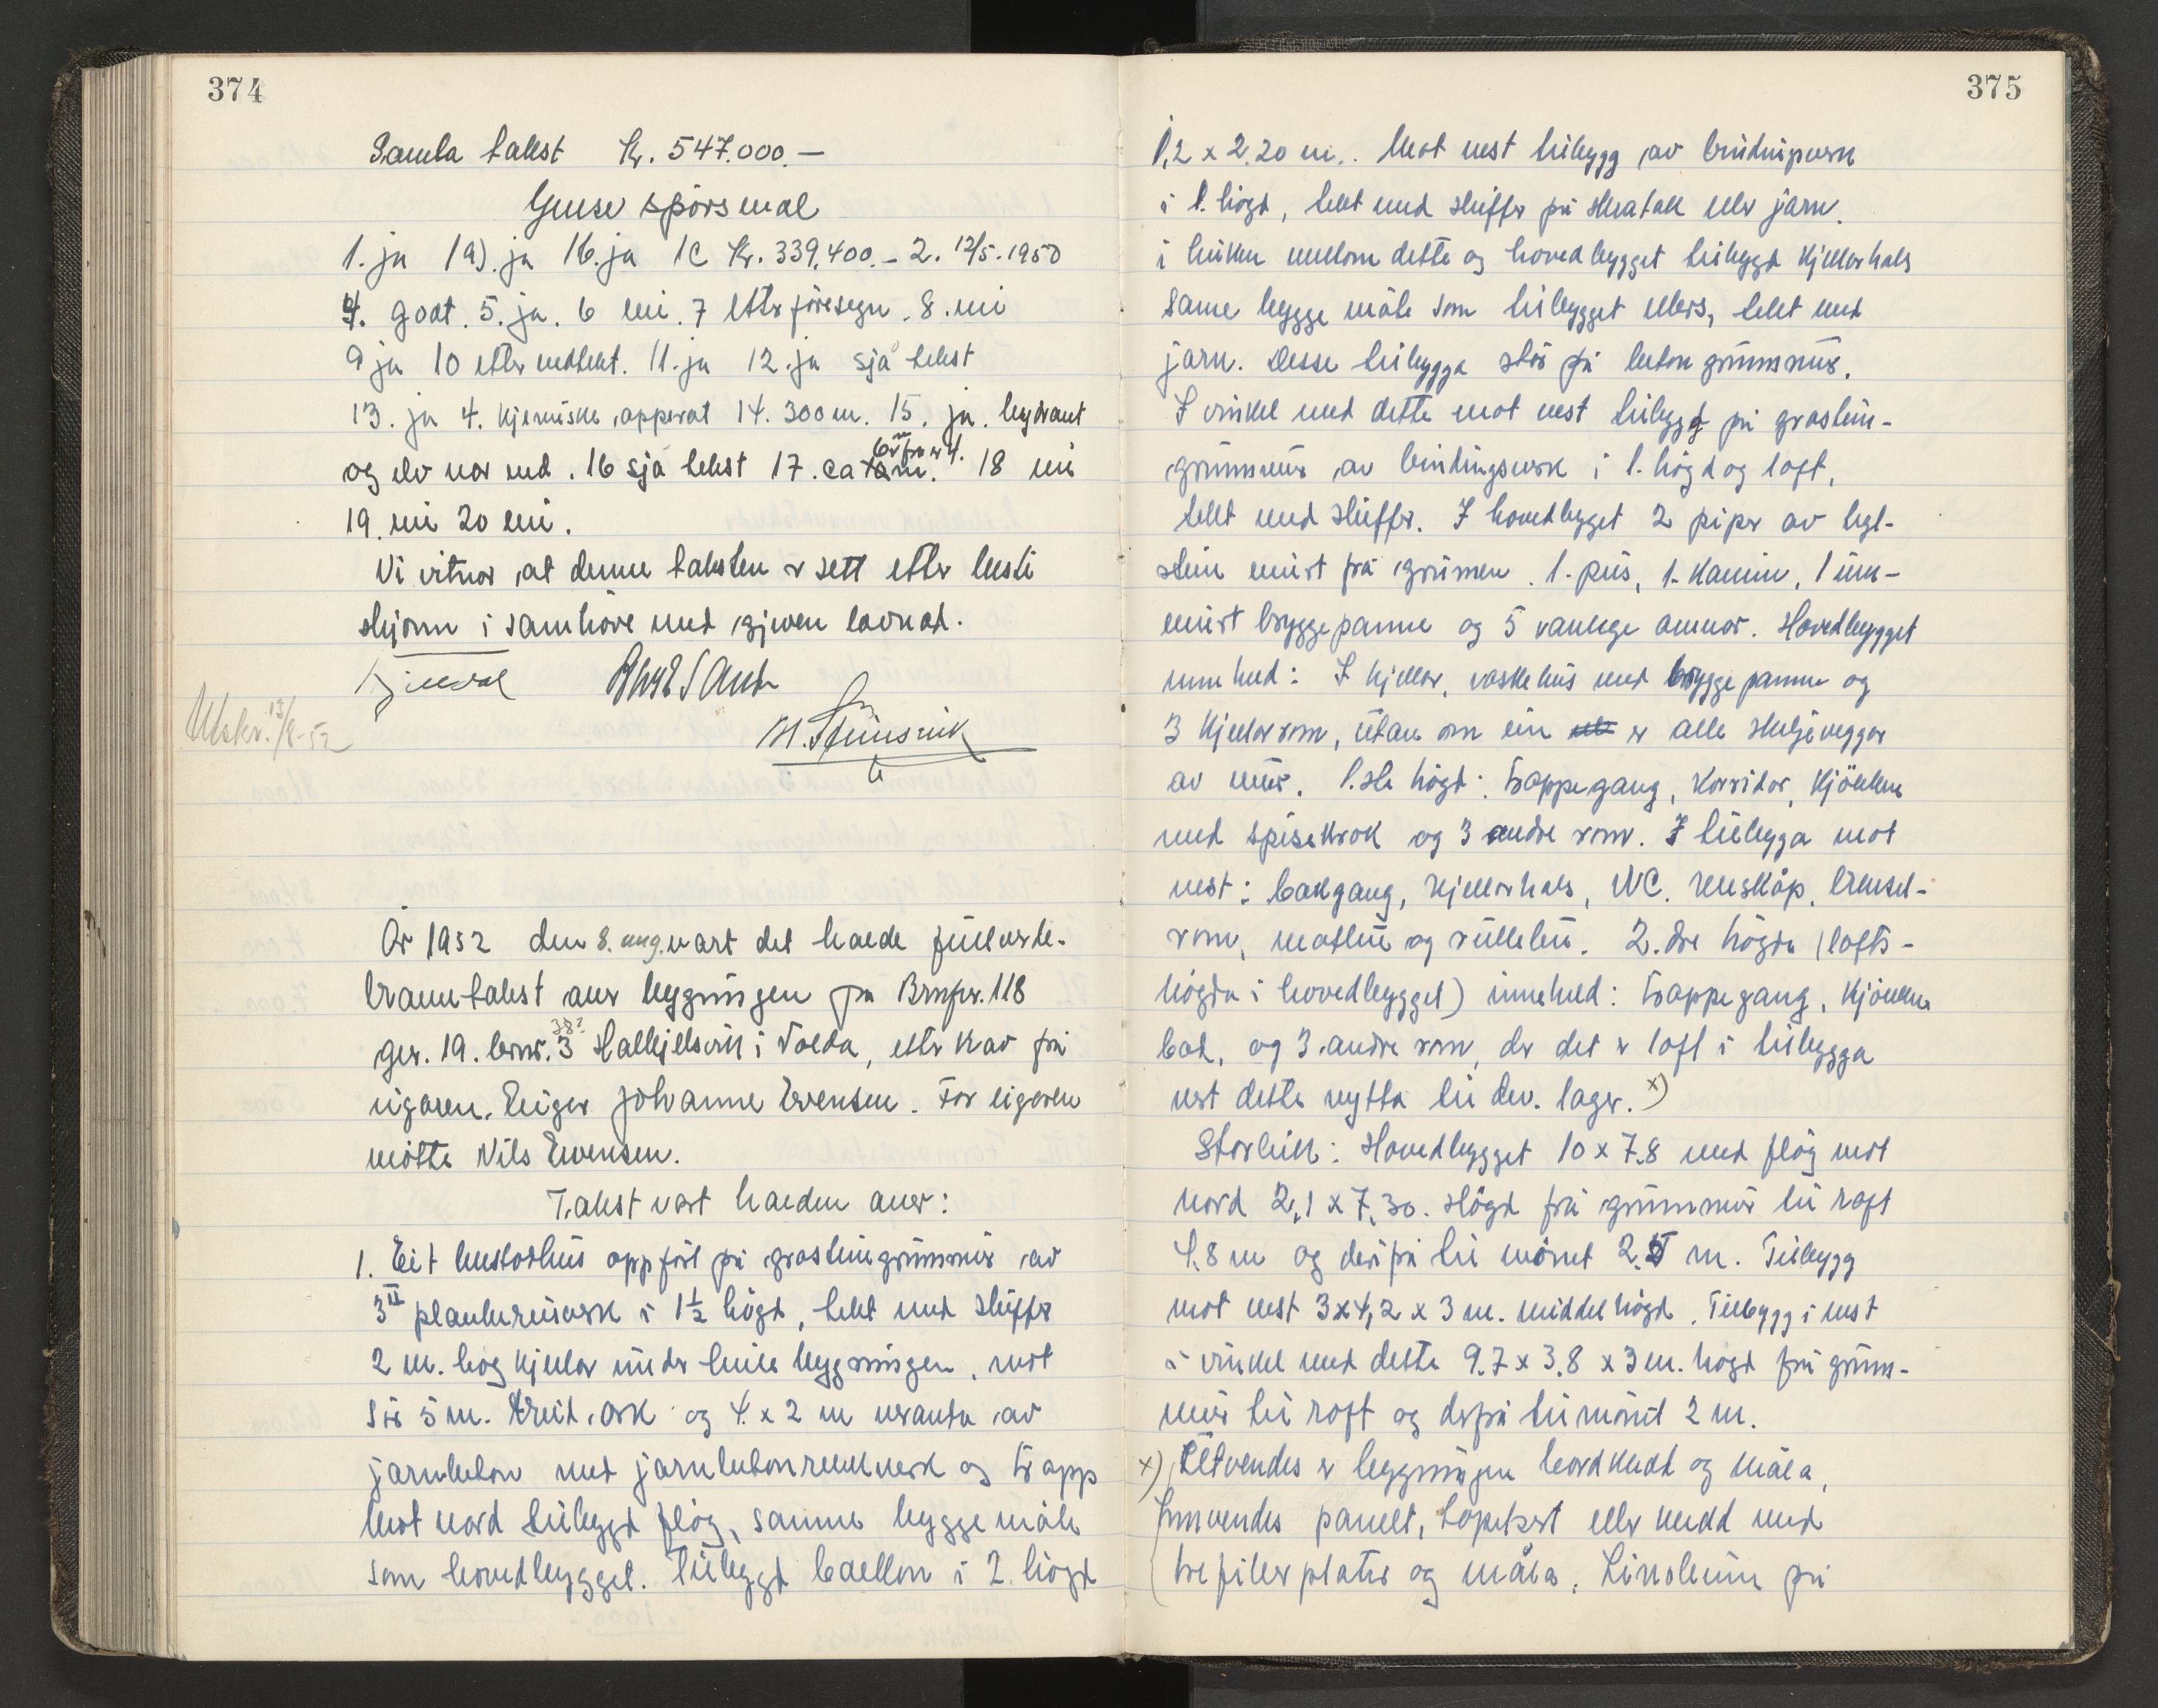 374
Samla takst Kr. 547.000.—
Ymse spörsmål
1. ja 1a). ja 1b. ja 1c Kr. 339.400.- 2. 12/5. 1950
4. godt. 5. ja. 6 nei. 7 etter föresegn. 8. nei
9 ja 10 etter vedtekt. 11. ja 12. ja sjå tekst
13. ja 4. kjemiske apparat 14. 300 m. 15. ja. hydrant
og elv nær ved. 16 sjå tekst 17. ca 6 m. 18 nei
19. nei 20 nei.
Vi vitnar at denne taksten er sett etter beste
skjönn i samhöve med gjeven lovnad.
Utskr. 13/8-52
År 1952 den 8. aug. vart det halde fullverde-
branntakst over bygningen på Brnfr. 118
gnr. 19. brnr. 3 38? Halkjelsvik i Volda, etter krav frå
eigaren. Eigar Johanne Evensen. For eigaren
mötte Nils Evensen.
Takst vart halden over:
1. Eit bustadhus oppfört på grasteingrunnmur av
3" plankereisverk i 1½ högd, tekt med skiffer
2 m. hög kjellar under heile bygningen, mot
Sör 5 m. breid ark og 4. x 2 m veranda av
jarnbetong med jarnbetongrekkverk og trapp
Mot nord tilbygd flög, samme byggemåte
som hovedbygget. Tilbygd balkon i 2. högd
375
1,2 x 2,20 m. Mot vest tilbygg av bindingsverk
i 1. högd, tekt med skiffer på skråtak eller jarn.
i kriken mellom dette og hovedbygget tilbygd kjellarhals
same byggemåte som tilbygget ellers, tekt med
jarn. Desse tilbygga står på betongrunnmur.
I vinkel med dette mot vest tilbygg på grastein-
grunnmur av bindingsverk i 1. högd og loft,
tekt med skiffer. I hovedbygget 2 piper av tegl-
stein murt frå grunnen. 1. peis, 1. kamin, 1 inn-
murt bryggepanne og 5 vanlege omnar. Hovedbygget
inneheld: I kjellar, vaskehus med bryggepanne og
3 kjellarrom, utan om ein er alle skiljevegger
av mur. 1.ste högd: Trappegang, korridor, kjökken
med spisekrok og 3 andre rom. I tilbygga mot
vest: bakgang, kjellarhals, WC. reiskåp, brensel-
rom, matbu og rullebu. 2.dre högda (lofts-
högda i hovedbygget) inneheld: Trappegang, kjökken
bad, og 3 andre rom, der det er loft i tilbygga
vert dette nytta til div. lager. x)
Storleik: Hovedbygget 10 x 7,8 med flög mot
nord 2,1 x 7,30. Högd frå grunnmur til raft
4,8 m og derifrå til mönet 2,5 m. Tilbygg
mot vest 3 x 4,2 x 3 m. middelhögd. Tilbygg i vest
i vinkel med dette 9.7 x 3,8 x 3 m. högd frå grunn-
mur til raft og derfrå til mönet 2 m.
x) Utvendes er bygningen bordkledd og måla,
Innvendes panelt, tapetsert eller kledd med
trefiberplater og måla. Linoleum på